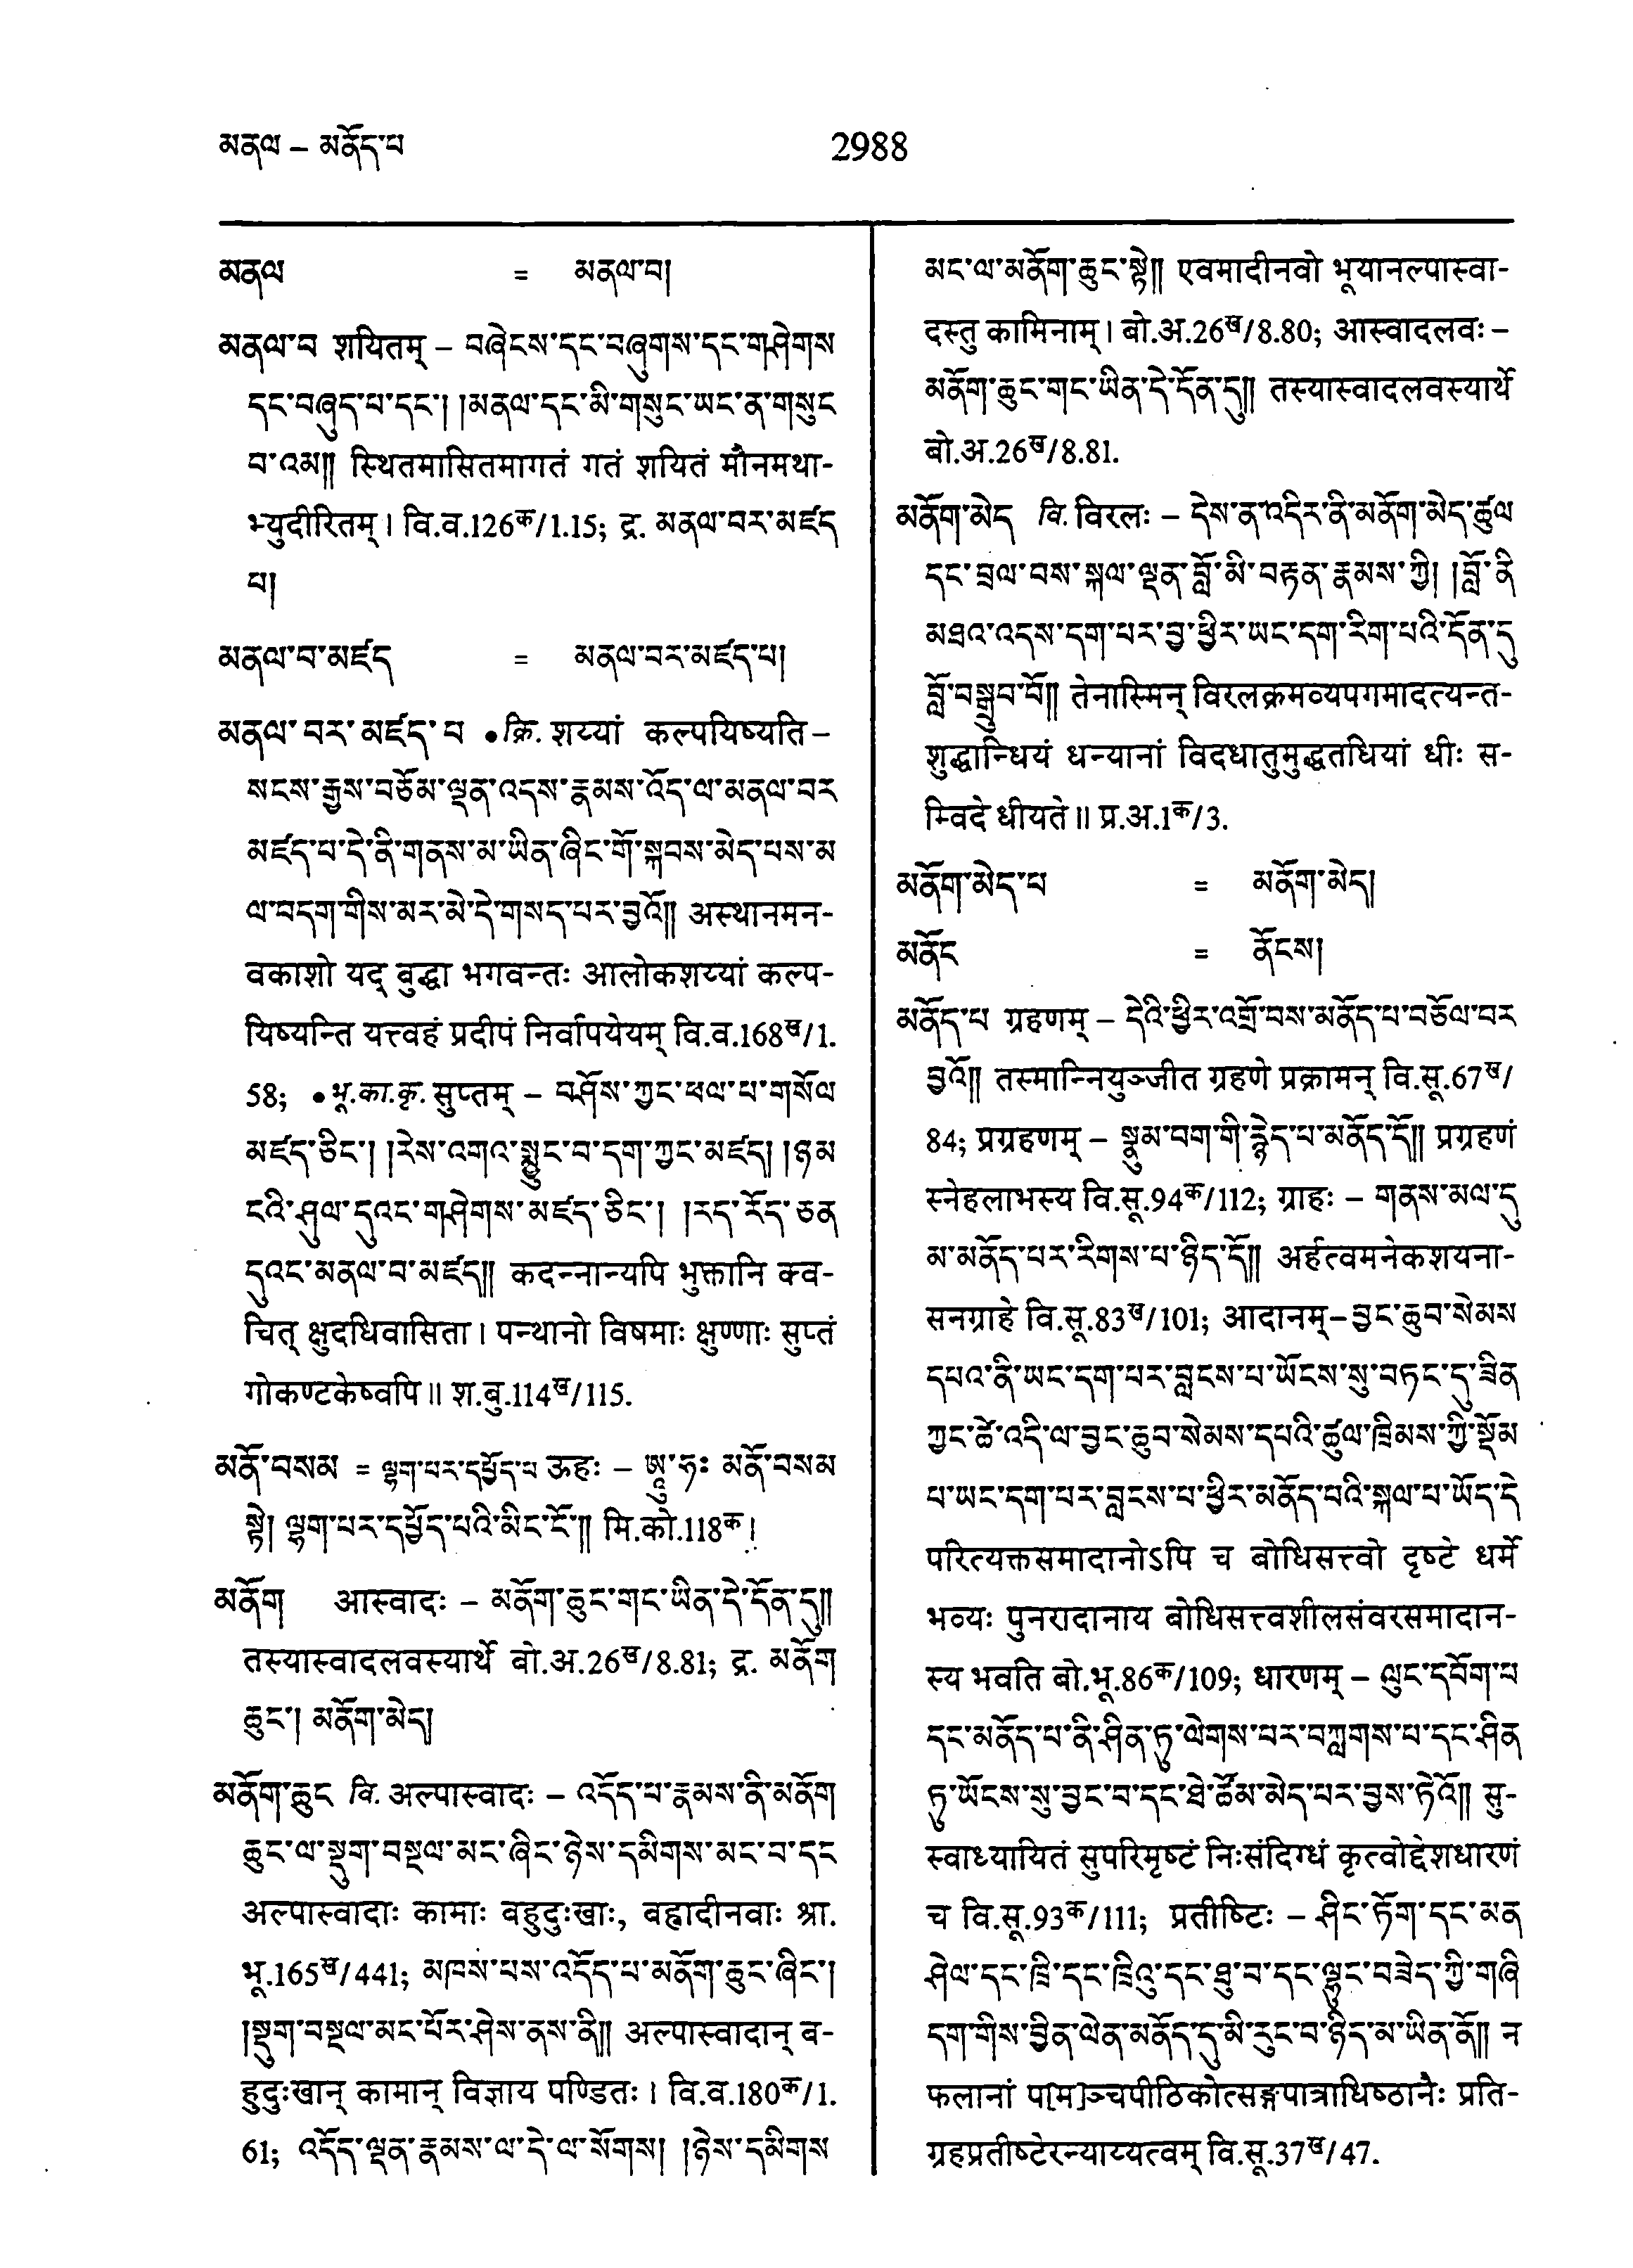 མནལ – མནོད་པ
2988
མནལ = མནལ་བ།
མནལ་བ शयितम् – བཞེངས་དང་བཞུགས་དང་གཤེགས
དང་བཞུད་པ་དང་། །མནལ་དང་མི་གསུང་ཡང་ན་གསུང
བ་འམ།། स्थितमासितमागतं गतं शयितं मौनमथा-
भ्युदीरितम् । वि.व.126क/1.15; द्र. མནལ་བར་མཛད
པ།
མནལ་བ་མཛད = མནལ་བར་མཛད་པ།
མནལ་བར་མཛད་པ •क्रि. शय्यां कल्पयिष्यति –
སངས་རྒྱས་བཅོམ་ལྡན་འདས་རྣམས་འོད་ལ་མནལ་བར
མཛད་པ་དེ་ནི་གནས་མ་ཡིན་ཞིང་གོ་སྐབས་མེད་པས་མ
ལ་བདག་གིས་མར་མེ་དེ་གསད་པར་བྱའོ།། अस्थानमन-
वकाशो यद् बुद्धा भगवन्तः आलोकशय्यां कल्प-
यिष्यन्ति यत्त्वहं प्रदीपं निर्वापयेयम् वि.व.168ख/1.
58; •भू.का.कृ. सुप्तम् – བཤོས་ཀྱང་ཕལ་པ་གསོལ
མཛད་ཅིང་། །རེས་འགའ་སྨྱུང་བ་དག་ཀྱང་མཛད། །ཉམ
ངའི་ཤུལ་དུའང་གཤེགས་མཛད་ཅིང་། །རད་རོད་ཅན
དུའང་མནལ་བ་མཛད།། कदन्नान्यपि भुक्तानि क्व-
चित् क्षुदधिवासिता । पन्थानो विषमाः क्षुण्णाः सुप्तं
गोकण्टकेष्वपि ॥ श.बु.114ख/115.
མནོ་བསམ = ལྷག་པར་དཔྱོད་པ ऊहः – ཨཱུ་ཧཿ མནོ་བསམ
སྟེ། ལྷག་པར་དཔྱོད་པའི་མིང་ངོ་།། मि.को.118क।
མནོག आस्वादः – མནོག་ཆུང་གང་ཡིན་དེ་དོན་དུ།།
तस्यास्वादलवस्यार्थे बो.अ.26ख/8.81; द्र. མནོག
ཆུང་། མནོག་མེད།
མནོག་ཆུང वि. अल्पास्वादः – འདོད་པ་རྣམས་ནི་མནོག
ཆུང་ལ་སྡུག་བསྔལ་མང་ཞིང་ཉེས་དམིགས་མང་བ་དང
अल्पास्वादाः कामाः बहुदुःखाः, बह्वादीनवाः श्रा.
भू.165ख/441; མཁས་པས་འདོད་པ་མནོག་ཆུང་ཞིང་།
།སྡུག་བསྔལ་མང་པོར་ཤེས་ནས་ནི།། अल्पास्वादान् ब-
हुदुःखान् कामान् विज्ञाय पण्डितः । वि.व.180क/1.
61; འདོད་ལྡན་རྣམས་ལ་དེ་ལ་སོགས། །ཉེས་དམིགས
མང་ལ་མནོག་ཆུང་སྟེ།། एवमादीनवो भूयानल्पास्वा-
दस्तु कामिनाम् । बो.अ.26ख/8.80; आस्वादलवः –
མནོག་ཆུང་གང་ཡིན་དེ་དོན་དུ།། तस्यास्वादलवस्यार्थे
बो.अ.26ख/8.81.
མནོག་མེད वि. विरलः – དེས་ན་འདིར་ནི་མནོག་མེད་ཚུལ
དང་བྲལ་བས་སྐལ་ལྡན་བློ་མི་བརྟན་རྣམས་ཀྱི། །བློ་ནི
མཐའ་འདས་དག་པར་བྱ་ཕྱིར་ཡང་དག་རིག་པའི་དོན་དུ
བློ་བསྒྲུབ་བོ།། तेनास्मिन् विरलक्रमव्यपगमादत्यन्त-
शुद्धान्धियं धन्यानां विदधातुमुद्धतधियां धीः स-
म्विदे धीयते ॥ प्र.अ.1क/3.
མནོག་མེད་པ = མནོག་མེད།
མནོང = ནོངས།
མནོད་པ ग्रहणम् – དེའི་ཕྱིར་འགྲོ་བས་མནོད་པ་བཅོལ་བར
བྱའོ།། तस्मान्नियुञ्जीत ग्रहणे प्रक्रामन् वि.सू.67ख/
84; प्रग्रहणम् – སྣུམ་བག་གི་རྙེད་པ་མནོད་དོ།། प्रग्रहणं
स्नेहलाभस्य वि.सू.94क/112; ग्राहः – གནས་མལ་དུ
མ་མནོད་པར་རིགས་པ་ཉིད་དོ།། अर्हत्वमनेकशयना-
सनग्राहे वि.सू.83ख/101; आदानम् – བྱང་ཆུབ་སེམས
དཔའ་ནི་ཡང་དག་པར་བླངས་པ་ཡོངས་སུ་བཏང་དུ་ཟིན
ཀྱང་ཚེ་འདི་ལ་བྱང་ཆུབ་སེམས་དཔའི་ཚུལ་ཁྲིམས་ཀྱི་སྡོམ
པ་ཡང་དག་པར་བླངས་པ་ཕྱིར་མནོད་པའི་སྐལ་པ་ཡོད་དེ
परित्यक्तसमादानोऽपि च बोधिसत्त्वो दृष्टे धर्मे
भव्यः पुनरादानाय बोधिसत्त्वशीलसंवरसमादान-
स्य भवति बो.भू.86क/109; धारणम् – ལུང་དབོག་པ
དང་མནོད་པ་ནི་ཤིན་ཏུ་ལེགས་པར་བཀླགས་པ་དང་ཤིན
ཏུ་ཡོངས་སུ་བྱང་བ་དང་ཐེ་ཚོམ་མེད་པར་བྱས་ཏེའོ།། सु-
स्वाध्यायितं सुपरिमृष्टं निःसंदिग्धं कृत्वोद्देशधारणं
च वि.सू.93क/111; प्रतीष्टिः – ཤིང་ཏོག་དང་མན
ཤེལ་དང་ཁྲི་དང་ཁྲིའུ་དང་ཐུ་བ་དང་ལྷུང་བཟེད་ཀྱི་གཞི
དག་གིས་བྱིན་ལེན་མནོད་དུ་མི་རུང་བ་ཉིད་མ་ཡིན་ནོ།། न
फलानां प[म]ञ्चपीठिकोत्सङ्गपात्राधिष्ठानैः प्रति-
ग्रहप्रतीष्टेरन्याय्यत्वम् वि.सू.37ख/47.